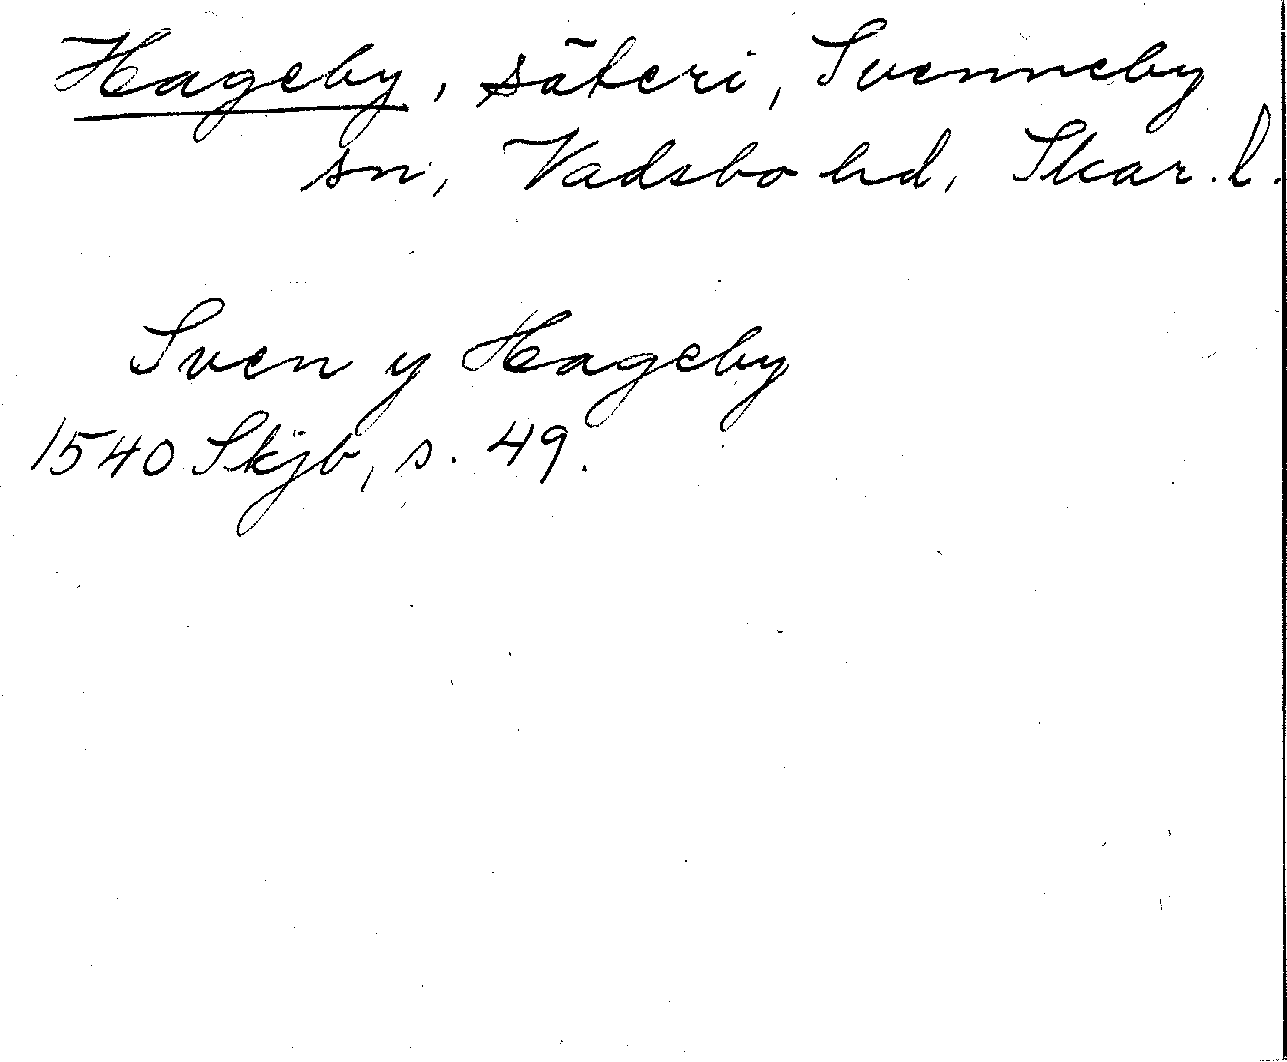 Hageby, säteri, Svenneby
sn, Vadsbo hd, Skar. l.
Sven y Hageby
1540 Skjb, s. 49.